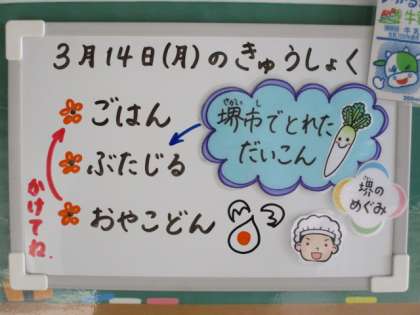 3月14日(月)のきゅうしょく
ごはん
ぶたじる
おやこどん
かけてね。
堺市でとれた
さかい し
だいこん
堺の
さかい
めぐみ